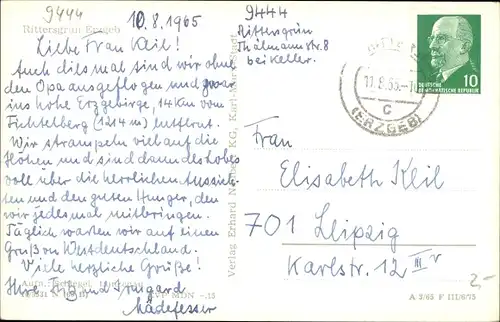 9444
10.8.1965
Rittersgrün Erzgeb
Liebe Frau Keil!
Auch diesmal sind wir ohne
den Opa ausgeflogen und zwar
ins hohe Erzgebirge, 14 km vom
Fichtelberg (1214 m) entfernt.
Wir strampeln viel auf die
Höhen und sind dann des Lobes
voll über die herrlichen Aussich-
ten und den guten Hunger, den
wir jedesmal mitbringen.
Täglich warten wir auf einen
Gruß von Westdeutschland.
Viele herzliche Grüße!
Ihre und Irmgard
Mädefesser
MDN -.15
Verlag Erhard KG, Karl-Marx-Stadt
9444
Rittersgrün
Thälmannstr. 8
bei Keller.
11.8.65.-
C
(ERZGEB)
10
DEUTSCHE
DEMOKRATISCHE REPUBLIK
Frau
Elisabeth Keil
701 Leipzig
Karlstr. 12 III r
2,-
A 5/65 F III/6/15